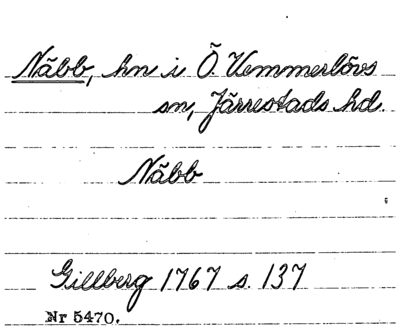 Näbb, hn i Ö. Vemmerlövs
sn, Järrestads hd.
Näbb
Gillberg 1767 s. 137
Nr 5470.